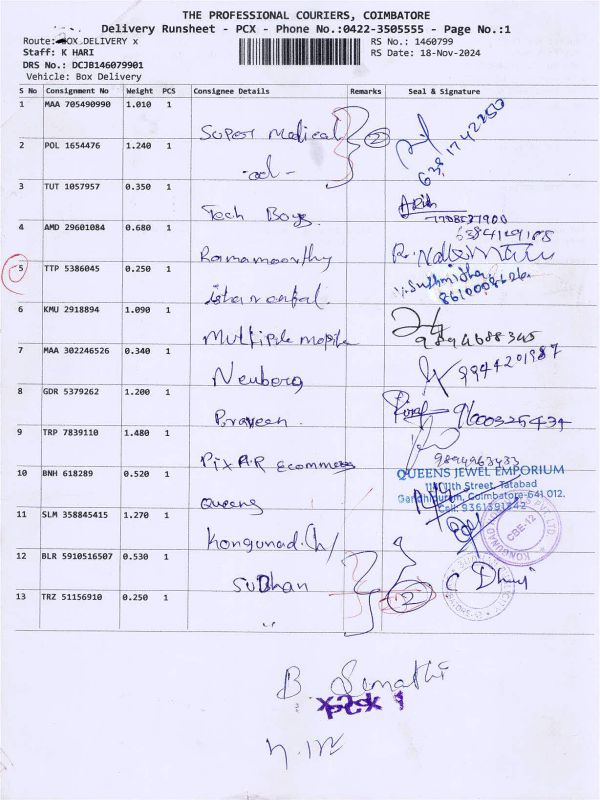 THE PROFESSIONAL COURIERS, COIMBATORE
Delivery Runsheet - PCX - Phone No.:0422-3505555 - Page No.:1
Route: BOX DELIVERY x RS No.: 1460799
Staff: K HARI RS Date: 18-Nov-2024
DRS No.: DCJB146079901
Vehicle: Box Delivery
S No Consignment No Weight PCS Consignee Details Remarks Seal & Signature
1 MAA 705490990 1.010 1
Super Medical 2
2 POL 1654476 1.240 1
3 TUT 1057957 0.350 1
Tech Boys
4 AMD 29601084 0.680 1
Ramamoorthy
5 TTP 5386045 0.250 1
8610008626
6 KMU 2918894 1.090 1
9894688345
7 MAA 302246526 0.340 1
Neuberg 9944201987
8 GDR 5379262 1.200 1
Praveen 9600325434
9 TRP 7839110 1.480 1
PIXAR Ecommerce 9894963433
10 BNH 618289 0.520 1
QUEENS JEWEL EMPORIUM
11th Street, Tatabad
Gandhipuram, Coimbatore-641 012.
Cell: 9361391842
Queens
11 SLM 358845415 1.270 1
Kongunad
12 BLR 5910516507 0.530 1
Sudhan
13 TRZ 51156910 0.250 1
2
CBE-12
B.